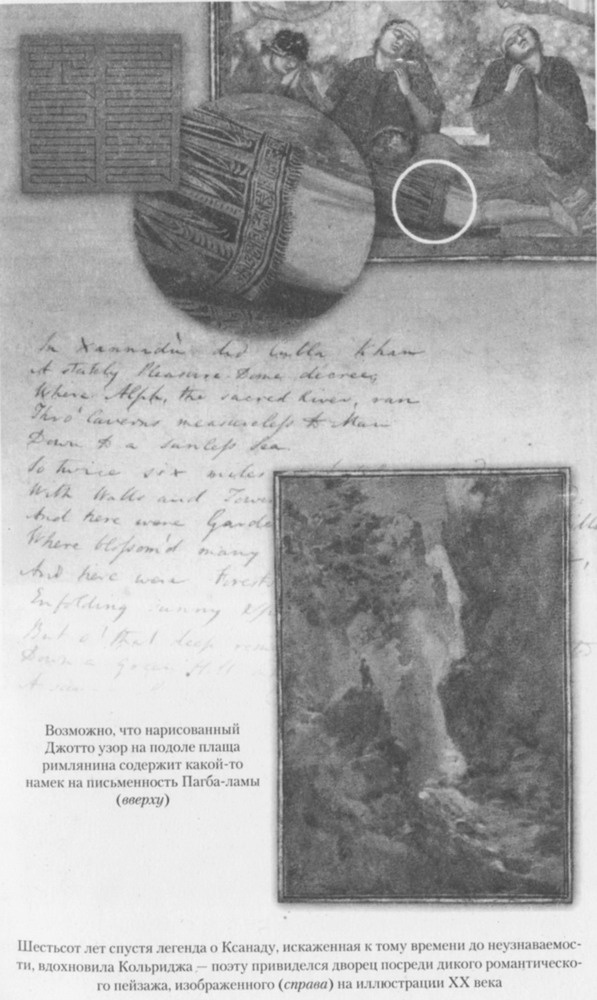 In Xannadù did Cubla Khan
A stately Pleasure-Dome decree;
Where Alph, the sacred River, ran
Thro' Caverns measureless to Man
Down to a sunless Sea.
So twice six miles
With Walls and Tower
And here were Garde
Where blossom'd many
And here were Forest
Enfolding sunny
But o! that deep
Down a Green Hill
Возможно, что нарисованный
Джотто узор на подоле плаща
римлянина содержит какой-то
намек на письменность Пагба-ламы
(вверху)
Шестьсот лет спустя легенда о Ксанаду, искаженная к тому времени до неузнаваемос-
ти, вдохновила Кольриджа — поэту привиделся дворец посреди дикого романтическо-
го пейзажа, изображенного (справа) на иллюстрации XX века